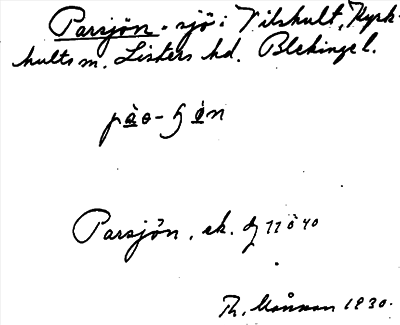 Parsjön. sjö i Vilshult, Kyrk-
hults m. Listers hd. Blekinge l.
Parsjön, ek. 71 ö 40
Th. Månsson 1930.